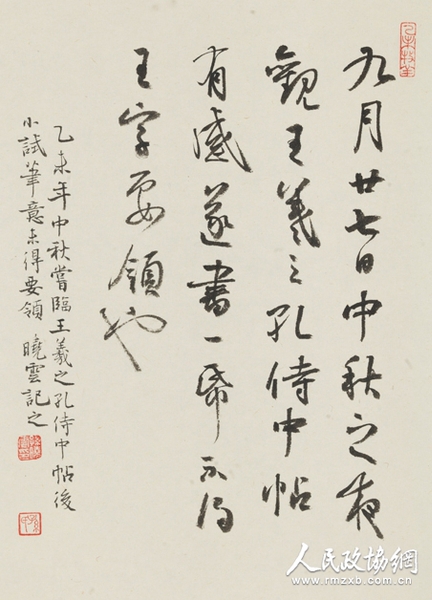 九月廿七日中秋之夜
觀王羲之孔侍中帖
有感遂書一帋不得
王字要領也
乙未年中秋嘗臨王羲之孔侍中帖後
小試筆意未得要領 曉雲記之
人民政协网
www.rmzxb.com.cn